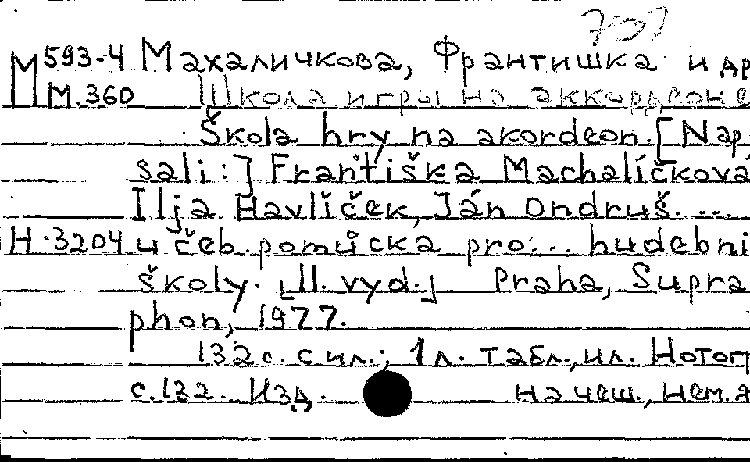 М 593-4 Махаличкова, Франтишка и др
М.360 Школа игры на аккордеоне
Škola hry na akordeon. [Nap
sali:] Františka Machalíčková
Ilja Havlíček, Ján Ondruš. ...
Н.3204 učeb. pomůcka pro... hudební
školy. [II. vyd.] Praha, Supra
phon, 1977.
132 с. с ил.; 1 л. табл., ил. Нотог
с.132. Изд. на чеш., нем. я